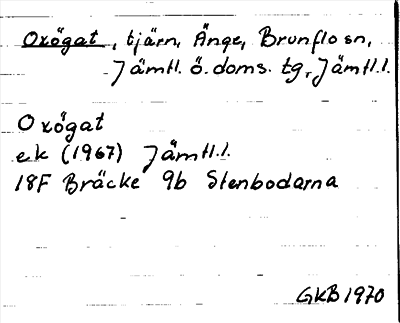 Oxögat, tjärn, Änge, Brunflo sn,
Jämtl. ö. doms. tg, Jämtl.l.
Oxögat
ek (1967) Jämtl.l.
18F Bräcke 9b Stenbodarna
GKB 1970